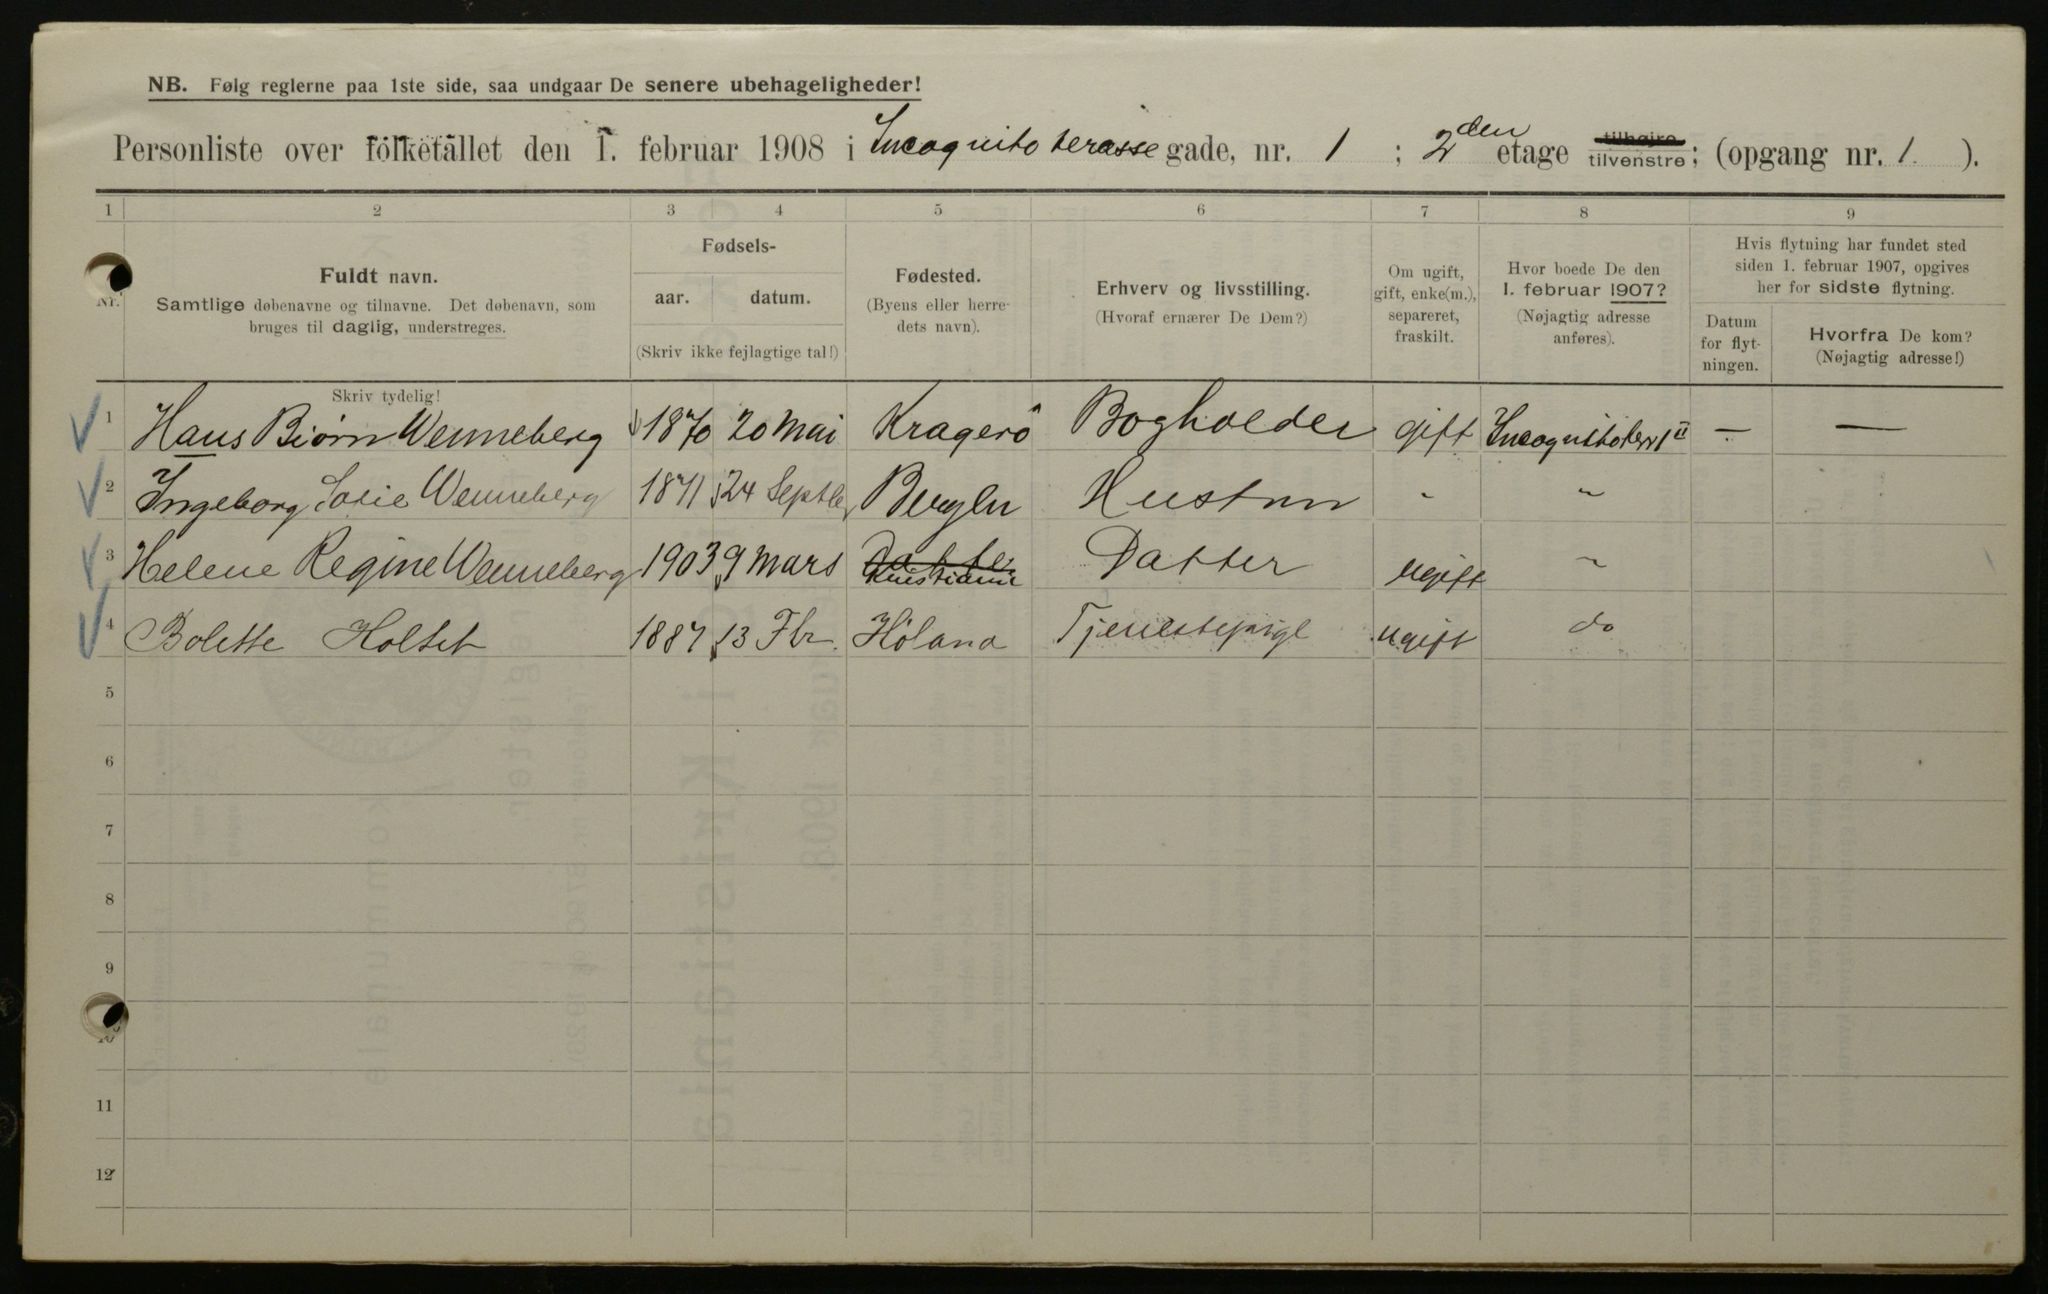 NB. Følg reglerne paa 1ste side, saa undgaar De senere ubehageligheder!
Personliste over folketallet den 1. februar 1908 i Incoquito terasse gade, nr. 1 ; 2den etage tilhøjre tilvenstre; (opgang nr. 1. ).
1 2 3 4 5 6 7 8 9
Nr.
Fuldt navn.
Samtlige døbenavne og tilnavne. Det døbenavn, som
bruges til daglig, understreges.
Skriv tydelig!
Fødsels-
aar. datum.
(Skriv ikke fejlagtige tal!)
Fødested.
(Byens eller herre-
dets navn).
Erhverv og livsstilling.
(Hvoraf ernærer De Dem?)
Om ugift,
gift, enke(m.),
separeret,
fraskilt.
Hvor boede De den
1. februar 1907?
(Nøjagtig adresse
anføres).
Hvis flytning har fundet sted
siden 1. februar 1907, opgives
her for sidste flytning.
Datum
for flyt-
ningen.
Hvorfra De kom?
(Nøjagtig adresse!)
1 Hans Biørn Wenneberg 1870 20 Mai Kragerö Bogholder gift Incoquitoterr 1 II — —
2 Ingeborg Sofie Wenneberg 1871 24 Septbr Bergen Hustru " "
3 Helene Regine Wenneberg 1903 9 Mars Datter Kristiania Datter ugift "
4 Bolette Holtet 1887 13 Fbr. Höland Tjenestepige ugift do
5
6
7
8
9
10
11
12